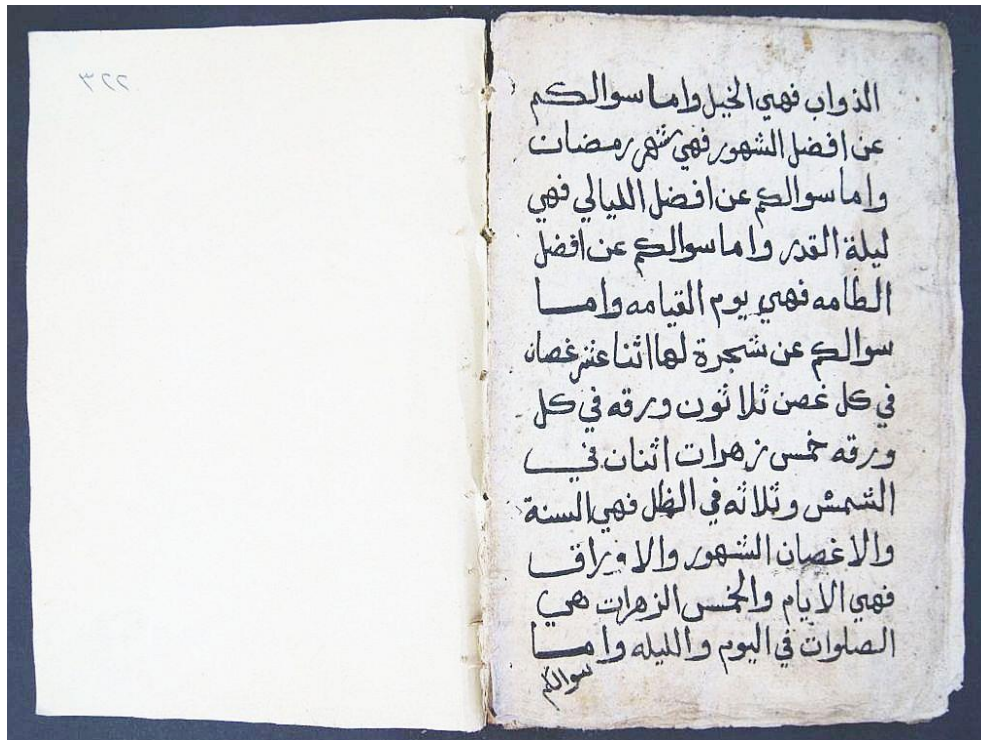 الذواب فهي الخيل واما سوالكم
عن افضل الشهور فهي شهر رمضان
واما سوالكم عن افضل الليالي فهي
ليلة القدر واما سوالكم عن افضل
الطامه فهي يوم القيامه واما
سوالكم عن شجرة لها اثنا عشر غصان
في كل غصن ثلاثون ورقه في كل
ورقه خمس زهرات اثنان في
الشمش وثلاثه في الظل فهي السنة
والاغصان الشهور والاوراق
فهي الايام والخمس الزهرات هي
الصلوات في اليوم والليله واما
سوالكم
٣٢٢